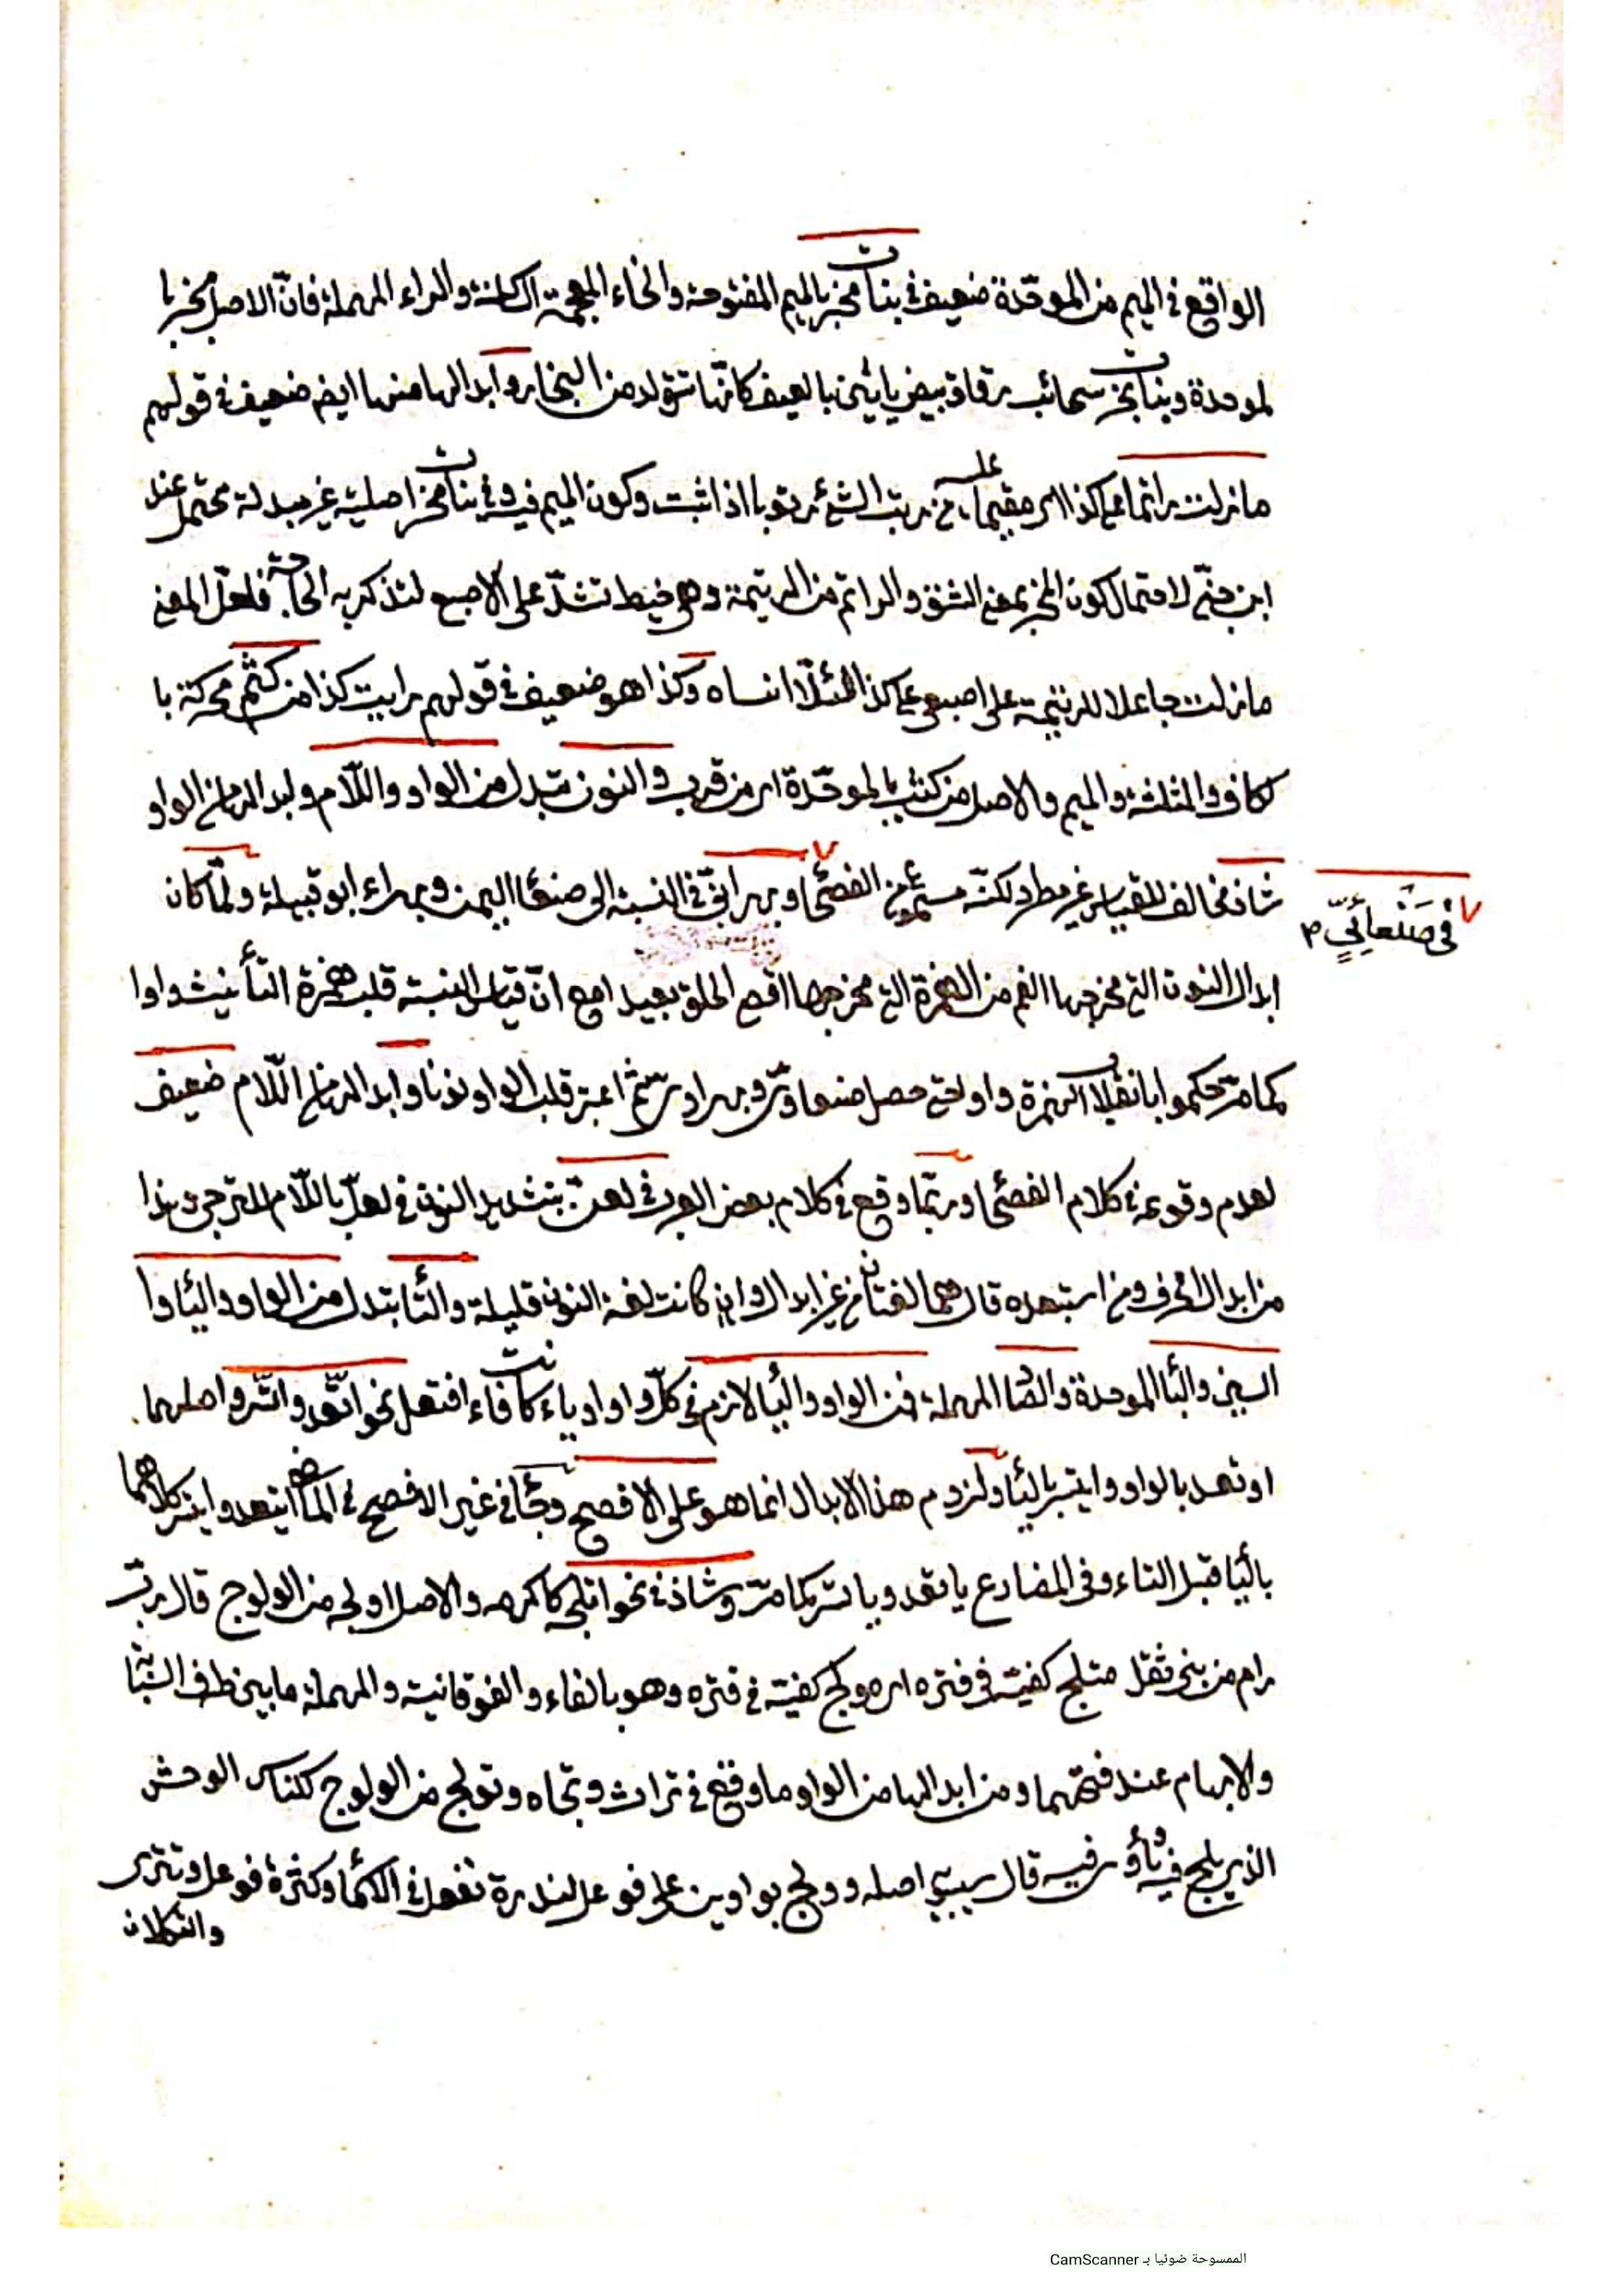 الواقع في الميم من الموحّدة ضعيف في بنات مخر بالميم المفتوحة والخاء المعجمة الساكنة والراء المهملة فانّ الاصل بخر با
لموحدة وبنات بخر سحائب رقاق بيض يأتين بالصيف كانّها تتولد من البخار وابدالها منها ايض ضعيف في قولهم
ما زلت راتما على كذا اى مقيما عليه من رتب الشئ رتوبا اذا ثبت وكون الميم فيه وفي بنات مخر اصلية غير مبدلة محتمل عند
ابن جنّي لاحتمال كون المخر بمعنى الشق والراتم من الرتيمة وهي خيط تشدّ على الاصبع لتذكر به الحاجة فلعل المعنى
ما زلت جاعلا للرتيمة على اصبعى على كذا لئلّا انساه وكذا هو ضعيف في قولهم رايت كذا من كثم محركة با
لكاف والمثلثة والميم والاصل من كثب بالموحّدة اى من قرب والنون تبدل من الواو واللّام وابدالها من الواو
شاذ مخالف للقياس غير مطرد لكنّه مسموع من الفصحاء وبهرانيّ في النسبة الى صنعاء اليمن وبهراء ابو قبيلة ولمّا كان
في صَنْعانِيٍّ م
ابدال النون التي مخرجها الفم من الهمزة التي مخرجها اقصى الحلق بعيدا مع انّ قياس النسبة قلب همزة التأنيث واوا
كما مرّ حكموا بانقلاب الهمزة واوا حتى حصل صنعاوىّ وبهراوىّ ثم اعتبر قلب الواو نونا وابدالها من اللّام ضعيف
لعدم وقوعه في كلام الفصحاء وربّما وقع في كلام بعض العرب في لعنّ بتشديد النون في لعلّ باللّام للترجى وهذا
من ابدال الحرف ومن استبعده قال هما لغتان من غير ابدال وان كانت لغة النون قليلة والتاء تبدل من الواو والياء وا
السين والباء الموحدة والصاد المهملة فمن الواو والياء لازم في كلّ واو او ياء كانت فاء افتعل نحو اتّعد واتّسر واصلهما
اوتعد بالواو وايتسر بالياء ولزوم هذا الابدال انما هو على الافصح وجاء في غير الافصح في الماضي ايتعد وايتسر كلاهما
بالياء قبل التاء وفي المضارع ياتعد وياتسر كما مرّ وشاذ في نحو اتلجه كاكرمه والاصل اولجه من الولوج قال ربّ
رام من بني ثعل متلج كفيّه في قتره اى مولج كفيّه في قتره وهو بالفاء والفوقانية والمهملة ما بين طرف السبّابة
والابهام عند فتحهما ومن ابدالها من الواو ما وقع في تراث وتجاه وتولج من الولوج لكناس الوحش
الذى يلج فيه وتأوى فيه قال سيبويه اصله وولج بواوين على فوعل لندرة تفعل في الاسماء وكثرة فوعل وتترى
والتكلان
الممسوحة ضوئيا بـ CamScanner